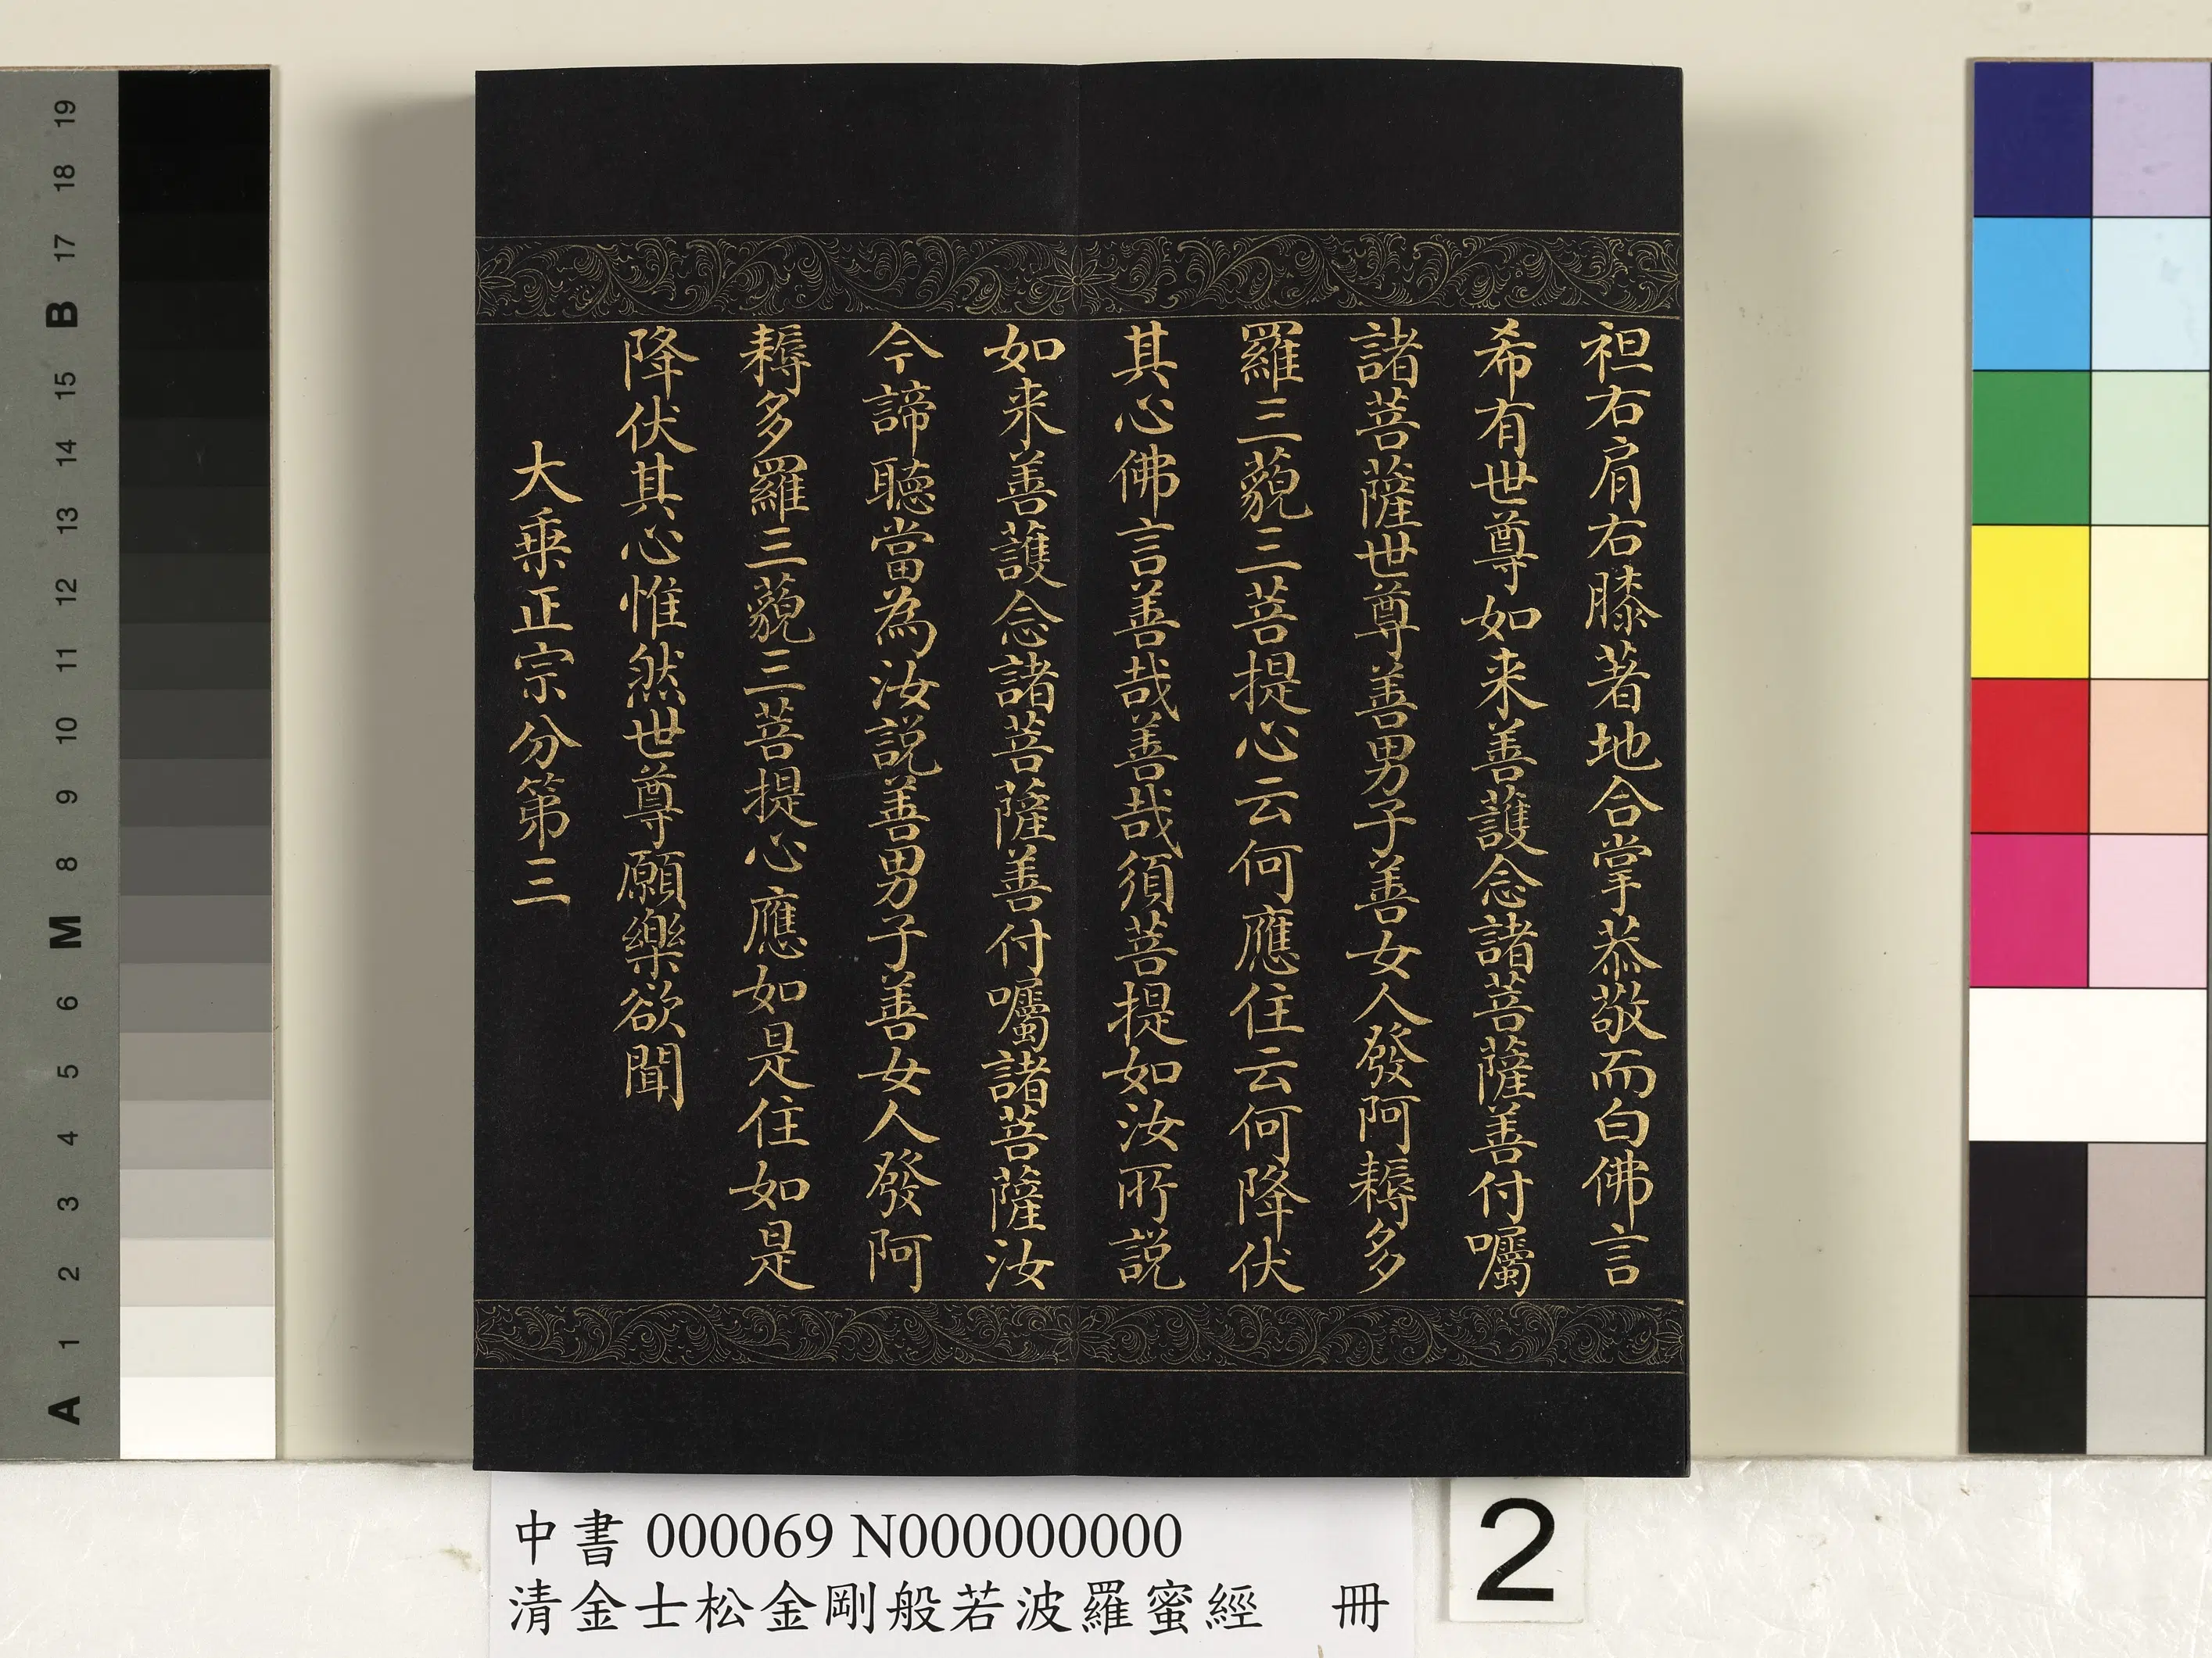 袒右肩右膝著地合掌恭敬而白佛言
希有世尊如来善護念諸菩薩善付囑
諸菩薩世尊善男子善女人發阿耨多
羅三藐三菩提心云何應住云何降伏
其心佛言善哉善哉須菩提如汝所説
如来善護念諸菩薩善付囑諸菩薩汝
今諦聽當為汝説善男子善女人發阿
耨多羅三藐三菩提心應如是住如是
降伏其心惟然世尊願樂欲聞
大乗正宗分第三
中書 000069 N000000000
清金士松金剛般若波羅蜜經 冊
2
19
18
17
B
15
14
13
12
11
10
9
8
M
6
5
4
3
2
1
A